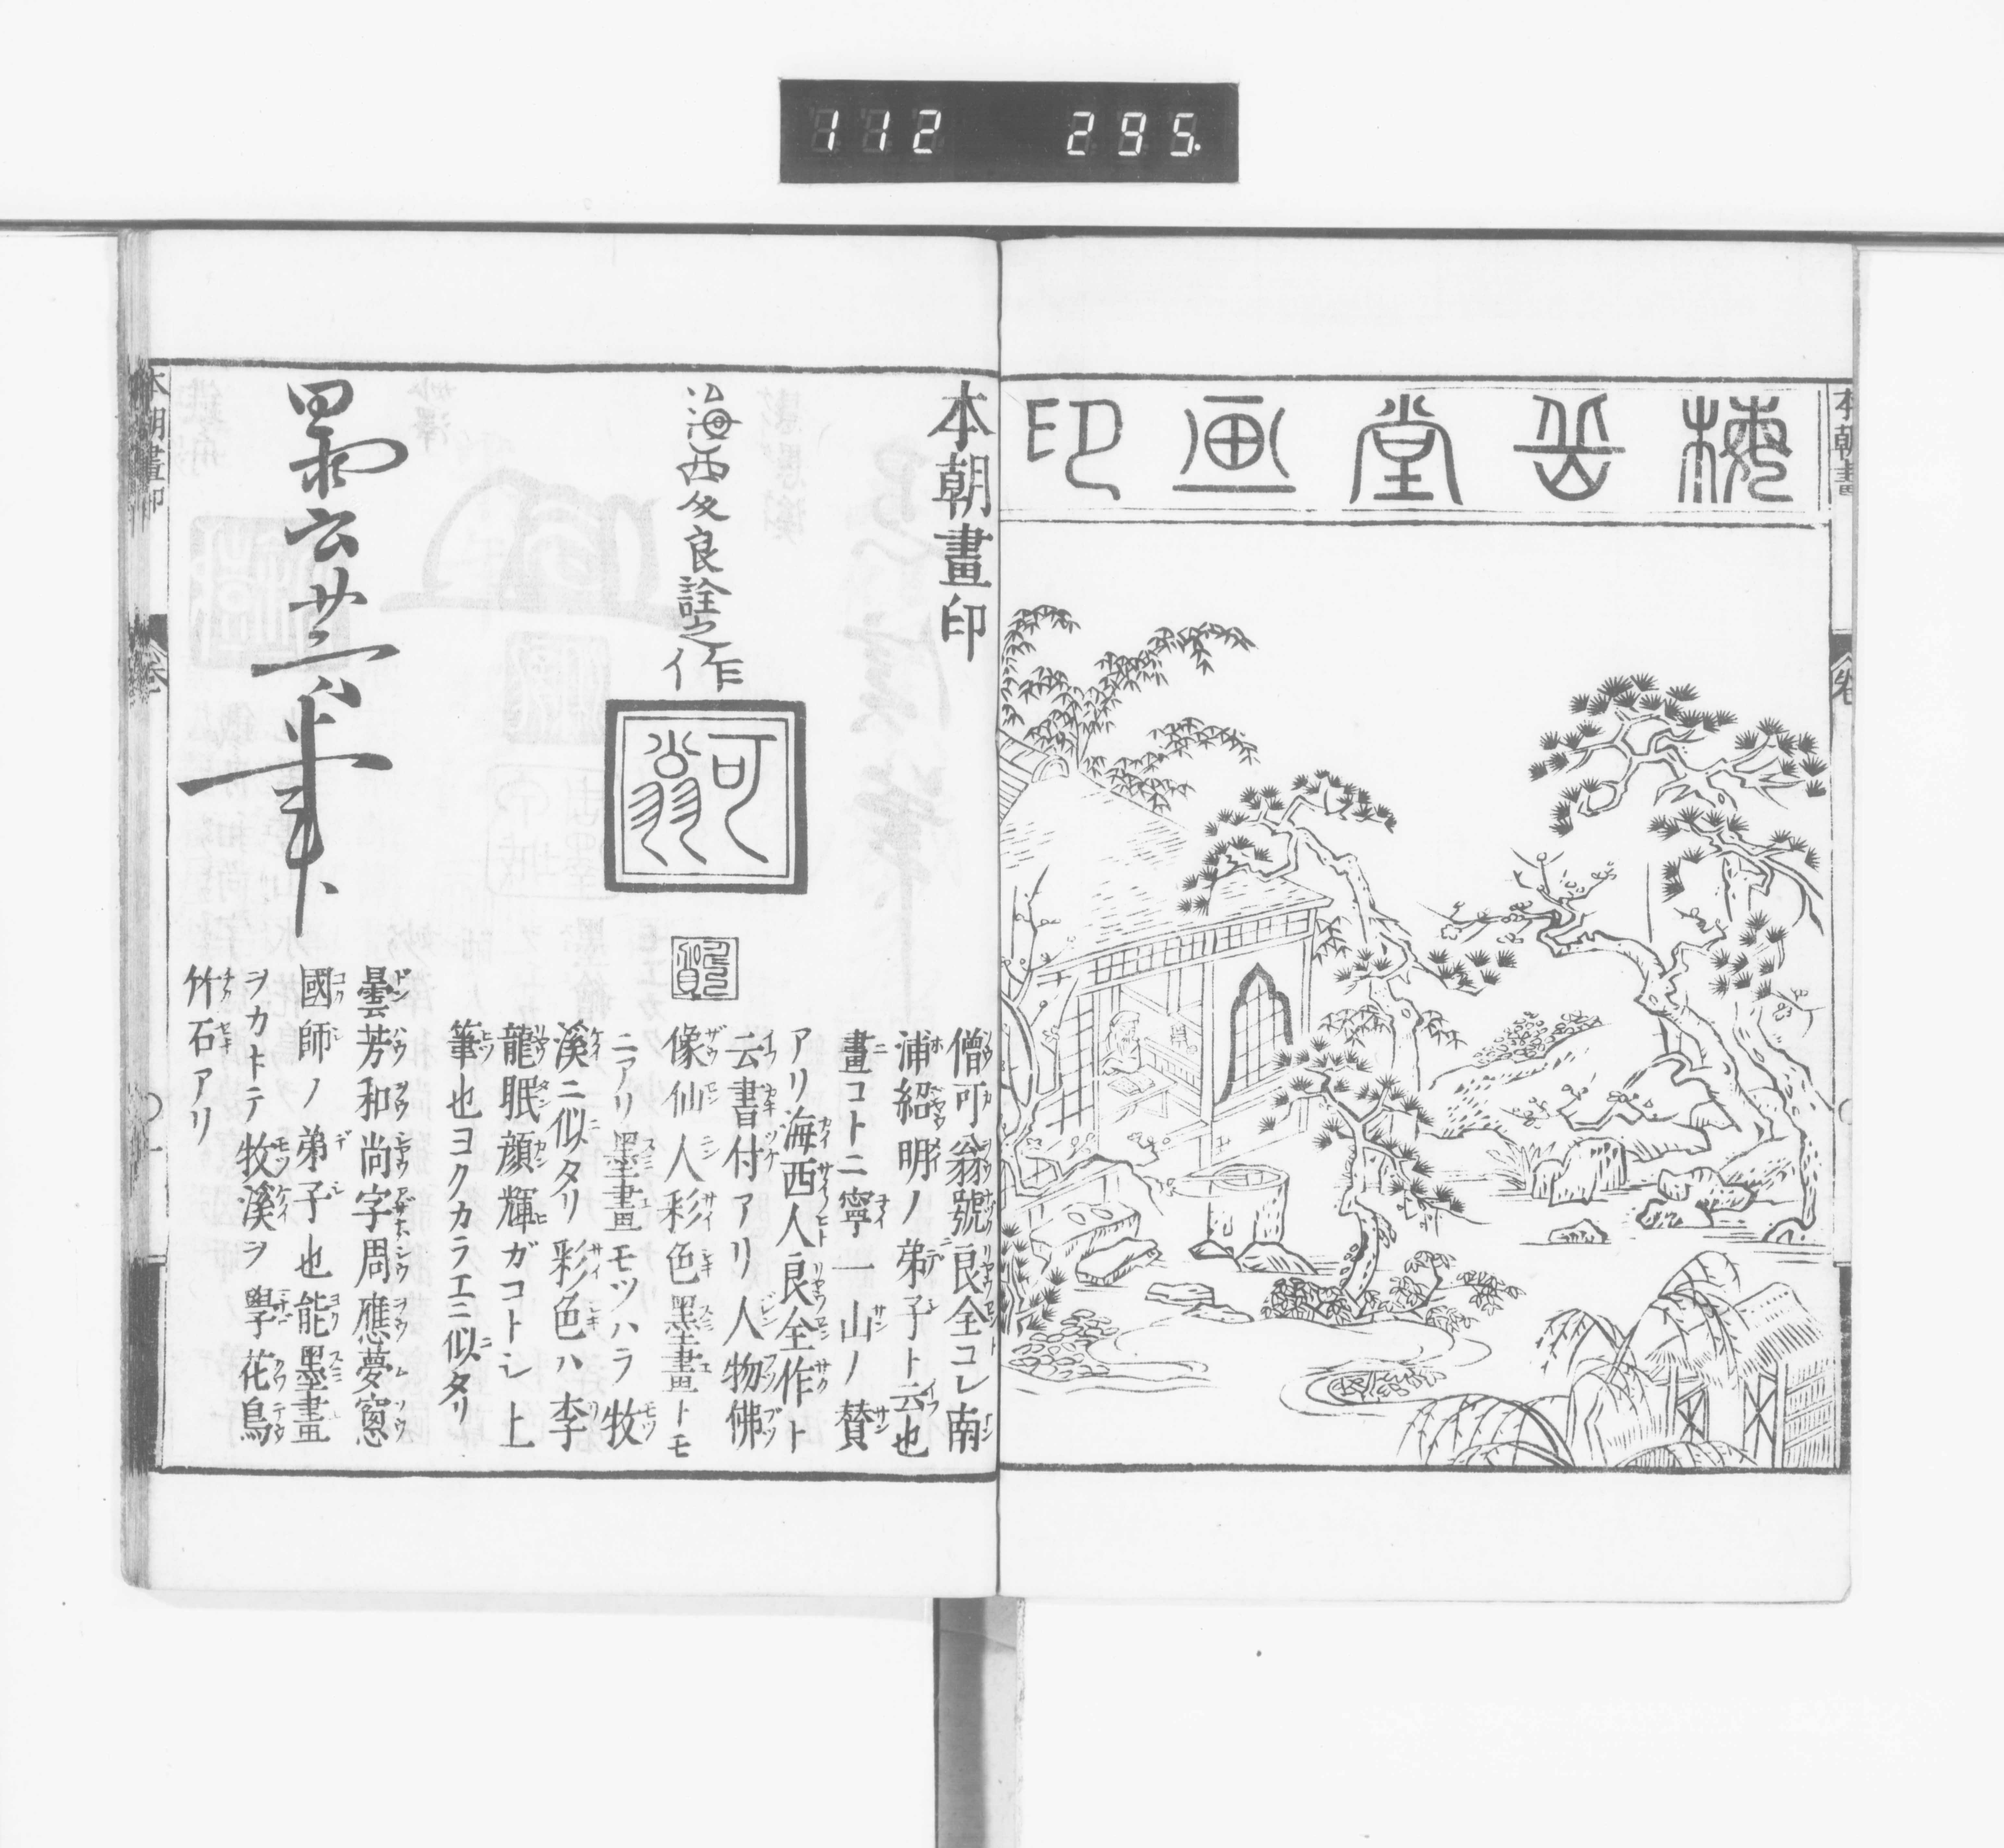 112 295.
梅岳堂画印
本朝畫
本朝畫印
海西人良詮之作
可翁
僧可翁號良全コレ南
浦紹明ノ弟子ト云也
畫コトニ寧一山ノ賛
アリ海西人良全作ト
云書付アリ人物佛
像仙人彩色墨畫トモ
ニアリ墨畫モツハラ牧
溪ニ似タリ彩色ハ李
龍眠顔輝ガコトシ上
筆也ヨクカラエニ似タリ
曇芳和尚字周應夢窓
國師ノ弟子也能墨畫
ヲカトテ牧溪ヲ學花鳥
竹石アリ
本朝畫印